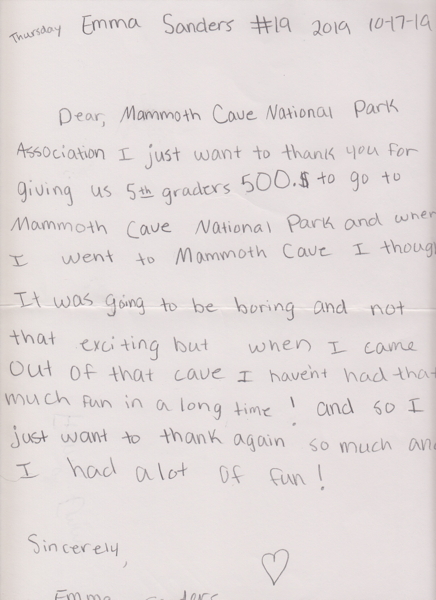 Thursday Emma Sanders #19 2019 10-17-19
Dear, Mammoth Cave National Park
Association I just want to thank you for
giving us 5th graders 500.$ to go to
Mammoth Cave National Park and when
I went to Mammoth Cave I though
It was going to be boring and not
that exciting but when I came
Out of that cave I haven't had that
much fun in a long time! and so I
just want to thank again so much and
I had alot of fun!
Sincerely,
Emma Sanders